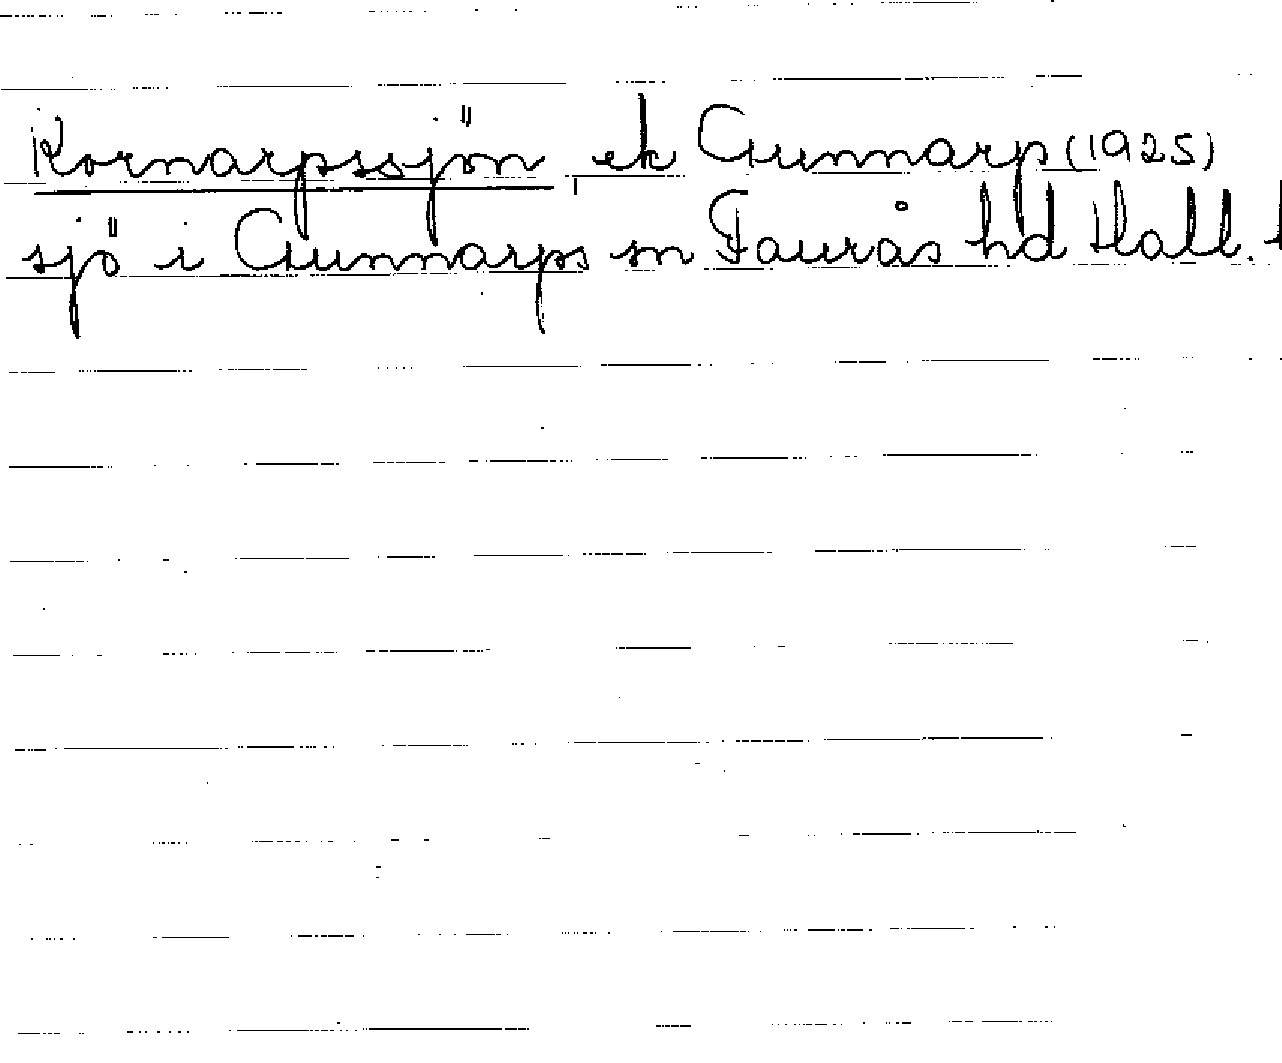 Kornarpssjön, ek Gunnarp (1925)
sjö i Gunnarps sn Faurås hd Hall. l